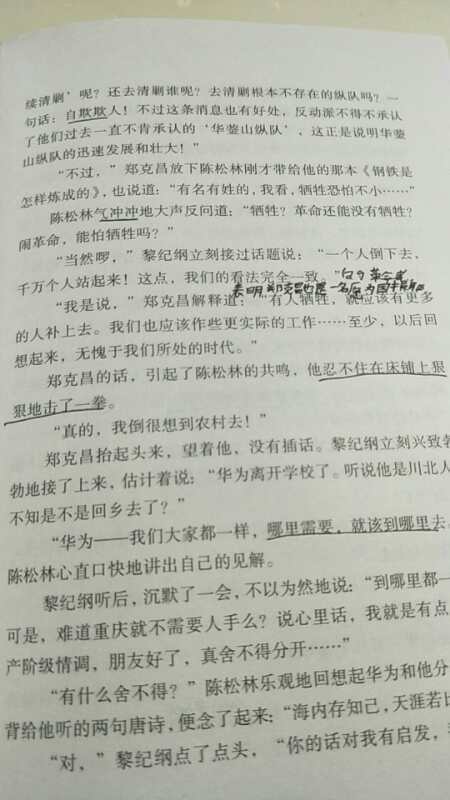 续清剿’呢？还去清剿谁呢？去清剿根本不存在的纵队吗？一
句话：自欺欺人！不过这条消息也有好处，反动派不得不承认
了他们过去一直不肯承认的‘华蓥山纵队’，这正是说明华蓥
山纵队的迅速发展和壮大！”
“不过，”郑克昌放下陈松林刚才带给他的那本《钢铁是
怎样炼成的》，也说道：“有名有姓的，我看，牺牲恐怕不小……”
陈松林气冲冲地大声反问道：“牺牲？革命还能没有牺牲？
闹革命，能怕牺牲吗？”
“当然啰，”黎纪纲立刻接过话题说：“一个人倒下去，
千万个人站起来！这点，我们的看法完全一致。”
表明，郑克昌也是一名
“我是说，”郑克昌解释道：“有人牺牲，就应该有更多
的人补上去。我们也应该作些更实际的工作……至少，以后回
想起来，无愧于我们所处的时代。”
郑克昌的话，引起了陈松林的共鸣，他忍不住在床铺上狠
狠地击了一拳。
“真的，我倒很想到农村去！”
郑克昌抬起头来，望着他，没有插话。黎纪纲立刻兴致勃
勃地接了上来，估计着说：“华为离开学校了。听说他是川北人
不知是不是回乡去了？”
“华为——我们大家都一样，哪里需要，就该到哪里去。
陈松林心直口快地讲出自己的见解。
黎纪纲听后，沉默了一会，不以为然地说：“到哪里都一
可是，难道重庆就不需要人手么？说心里话，我就是有点
产阶级情调，朋友好了，真舍不得分开……”
“有什么舍不得？”陈松林乐观地回想起华为和他分
背给他听的两句唐诗，便念了起来：“海内存知己，天涯若比
“对，”黎纪纲点了点头，“你的话对我有启发，